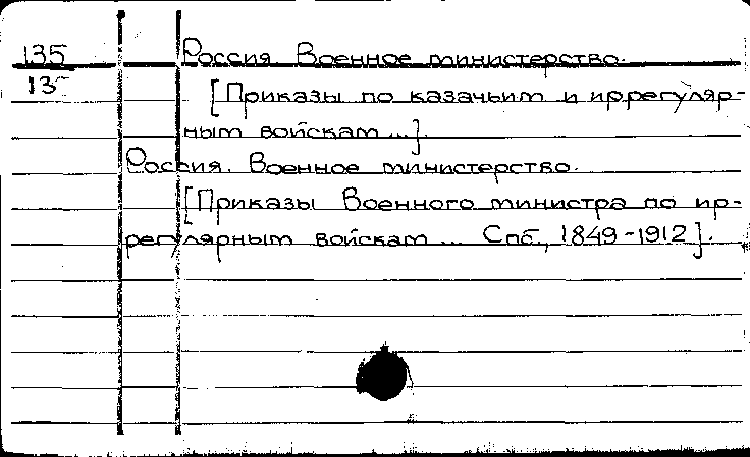 135 Россия. Военное министерство.
13
[Приказы по казачьим и иррегуляр-
ным войскам ...].
Россия. Военное министерство.
[Приказы Военного министра по ир-
регулярным войскам ... Спб., 1849-1912].